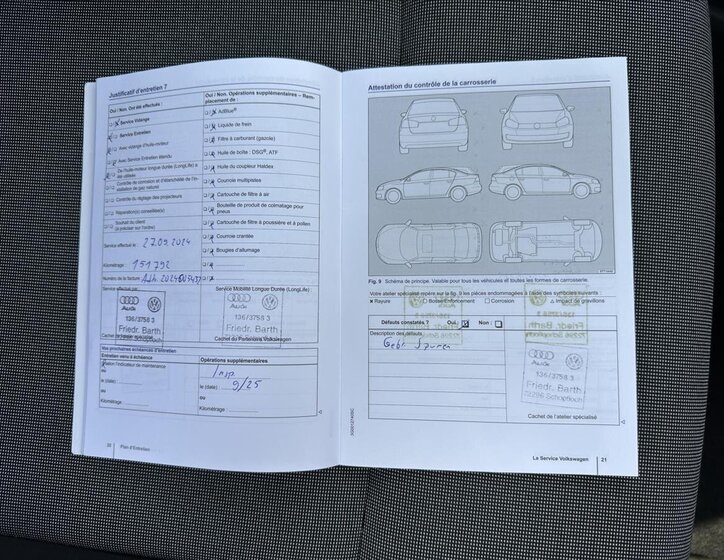 Justificatif d'entretien 7
Oui / Non. Ont été effectués :
Service Vidange
Service Entretien
Avec vidange d'huile-moteur
Avec Service Entretien étendu
De l'huile-moteur longue durée (LongLife) a été utilisée
Contrôle de corrosion et d'étanchéité de l'installation de gaz naturel
Contrôle du réglage des projecteurs
Réparation(s) conseillée(s)
Souhait du client
(à préciser sur l'ordre)
Service effectué le : 27.09.2024
Kilométrage : 151792
Numéro de la facture
Service effectué par
Audi
136/3758 3
Friedr. Barth
Oui / Non. Opérations supplémentaires – Remplacement de :
AdBlue®
Liquide de frein
Filtre à carburant (gazole)
Huile de boîte : DSG®, ATF
Huile du coupleur Haldex
Courroie multipistes
Cartouche de filtre à air
Bouteille de produit de colmatage pour pneus
Cartouche de filtre à poussière et à pollen
Courroie crantée
Bougies d'allumage
Service Mobilité Longue Durée (LongLife)
Cachet du Partenaire Volkswagen
Vos prochaines échéances d'entretien
Entretien venu à échéance
Selon l'indicateur de maintenance
ou
le (date) :
ou
Kilométrage :
Opérations supplémentaires
Insp
le (date) : 9/25
ou
Kilométrage :
20 Plan d'Entretien
Attestation du contrôle de la carrosserie
Fig. 9 Schéma de principe. Valable pour tous les véhicules et toutes les formes de carrosserie.
Votre atelier spécialisé repère sur la fig. 9 les pièces endommagées à l'aide des symboles suivants :
x Rayure □ Bosse/Enfoncement □ Corrosion △ Impact de gravillons
Défauts constatés ? Oui : Non :
Description des défauts
Audi
136/3758 3
Friedr. Barth
72296 Schopfloch
Cachet de l'atelier spécialisé
La Service Volkswagen 21